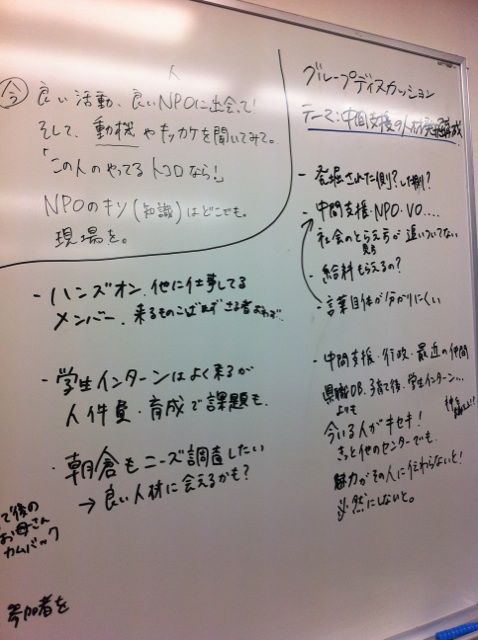 人
今 良い活動、良いNPOに出会って!
そして、動機やキッカケを聞いてみて。
「この人のやってるトコロなら!」
NPOのキソ(知識)はどこでも。
現場を。
・ハンズオン、他に仕事してる
メンバー、来るものこばまず さる者おわず
・学生インターンはよく来るが
人件費・育成で課題も
・朝倉もニーズ調査したい
→良い人材に会えるかも?
て後の
お母さん
カムバック
参加者を
グループディスカッション
テーマ:中間支援の人材発掘育成
・発掘された側?した側?
・中間支援・NPO・VO....
社会のとらえ方が追いついてない
見方
・給料もらえるの?
・言葉自体が分かりにくい
・中間支援・行政・最近の仲間
県職OB、子育て後、学生インターン...
よりも
今いる人がキセキ!
きっと他のセンターでも。
魅力がその人に伝わらないと!
必然にしないと。